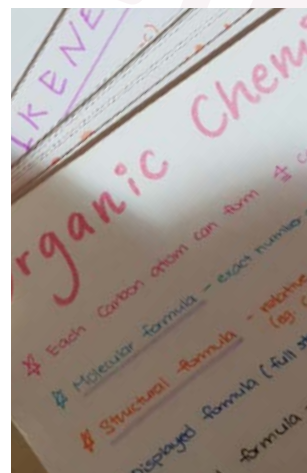 KENE
rganic Chem
# Each carbon atom can form 4 c
# Molecular formula - exact number
# Structural formula - relative
(eg.
isplayed formula (full st
formula